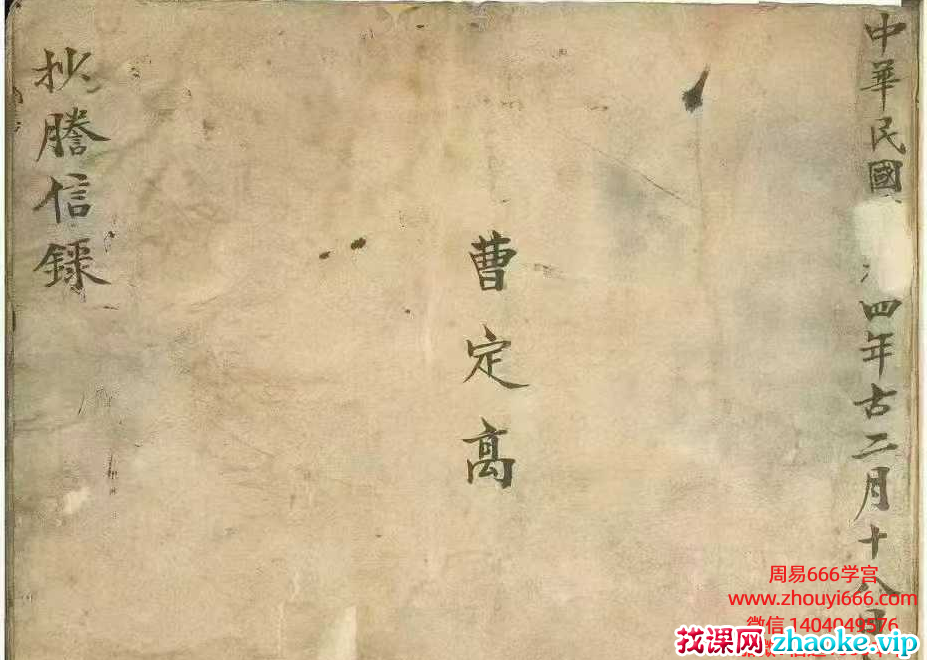 中華民國
四年古二月十八日
曹定离
抄謄信錄
周易666学宫
www.zhouyi666.com
微信 1404049576
找课网 zhaoke.vip